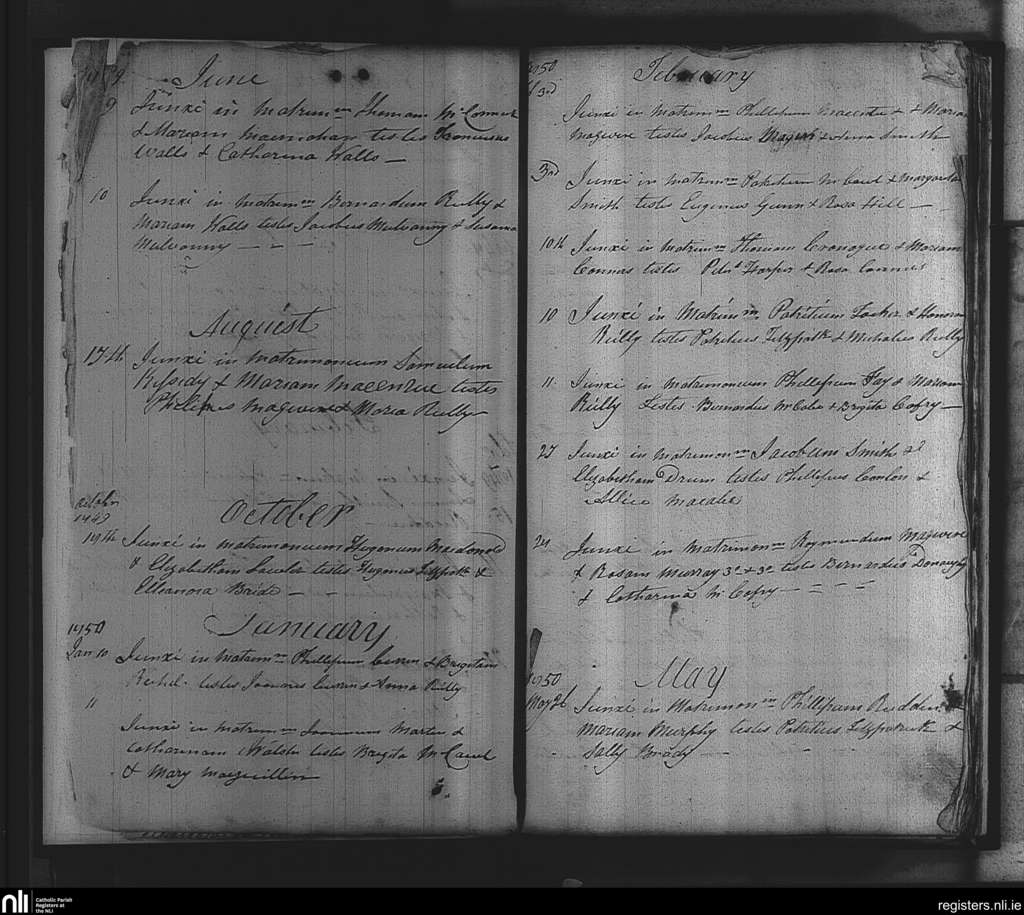 June
9 Junxi in matrim m Thomam McConnick
& Mariam macmahan testes Franciscus
Walls & Catharina Walls —
10 Junxi in matrim m Bernardum Reilly &
Mariam Walls testes Jacobus Mulvanny & Susanna
Mulvanny — — —
August
17th Junxi in matrimoneum Samuelum
Kessedy & Mariam Macenrue testes
Philipus Magwire & Maria Reilly
October
October
19th Junxi in matrimoneum Hugonum Macdonold
& Elizabetham testes Hugonus Fitzpatk &
Elleanora Bride — —
January
1850
Jan 10 Junxi in matrim m Phillipum Curren & Brigetam
testes Joannes Curren & Anna Reilly
11
Junxi in matrim m Joannum Marten &
Catharinam Walsh testes Brigeta McCaul
& Mary macquillin
1850 February
3rd
Junxi in matrim m Phillipum & Mariam
magwire testes Jacobus Magwire & Anna Smith
3rd Junxi in matrim m Patritium McCaul & Margaretam
Smith testes Eugenus Gunn & Rosa Hill —
10th Junxi in matrim m Thomam Cronogue & Mariam
Connas testes Petr Harper & Rosa
10 Junxi in Matrim m Patritium & Honoram
Reilly testes Patritius Fitzpatk & Michalus Reilly
11 Junxi in matrimoneum Phillipum Fay & Mariam
Reilly testes Bernardus McCabe & Brigeta Cafry —
Junxi in matrimon m Jacobum Smith &
Elizabetham Drum testes Phillipus Conlon &
Allice
Junxi in matrimon m Raymundum Magwire
& Rosam Murray 3o & 3o testes Bernardus Donaughy
& Catharina McCafry — — — —
May
1850
May 26 Junxi in Matrimon m Phillipum Redden &
Mariam Murphy testes Patritius Fitzpatrick &
Sally Brady
nli
Catholic Parish
Registers at
the NLI
registers.nli.ie